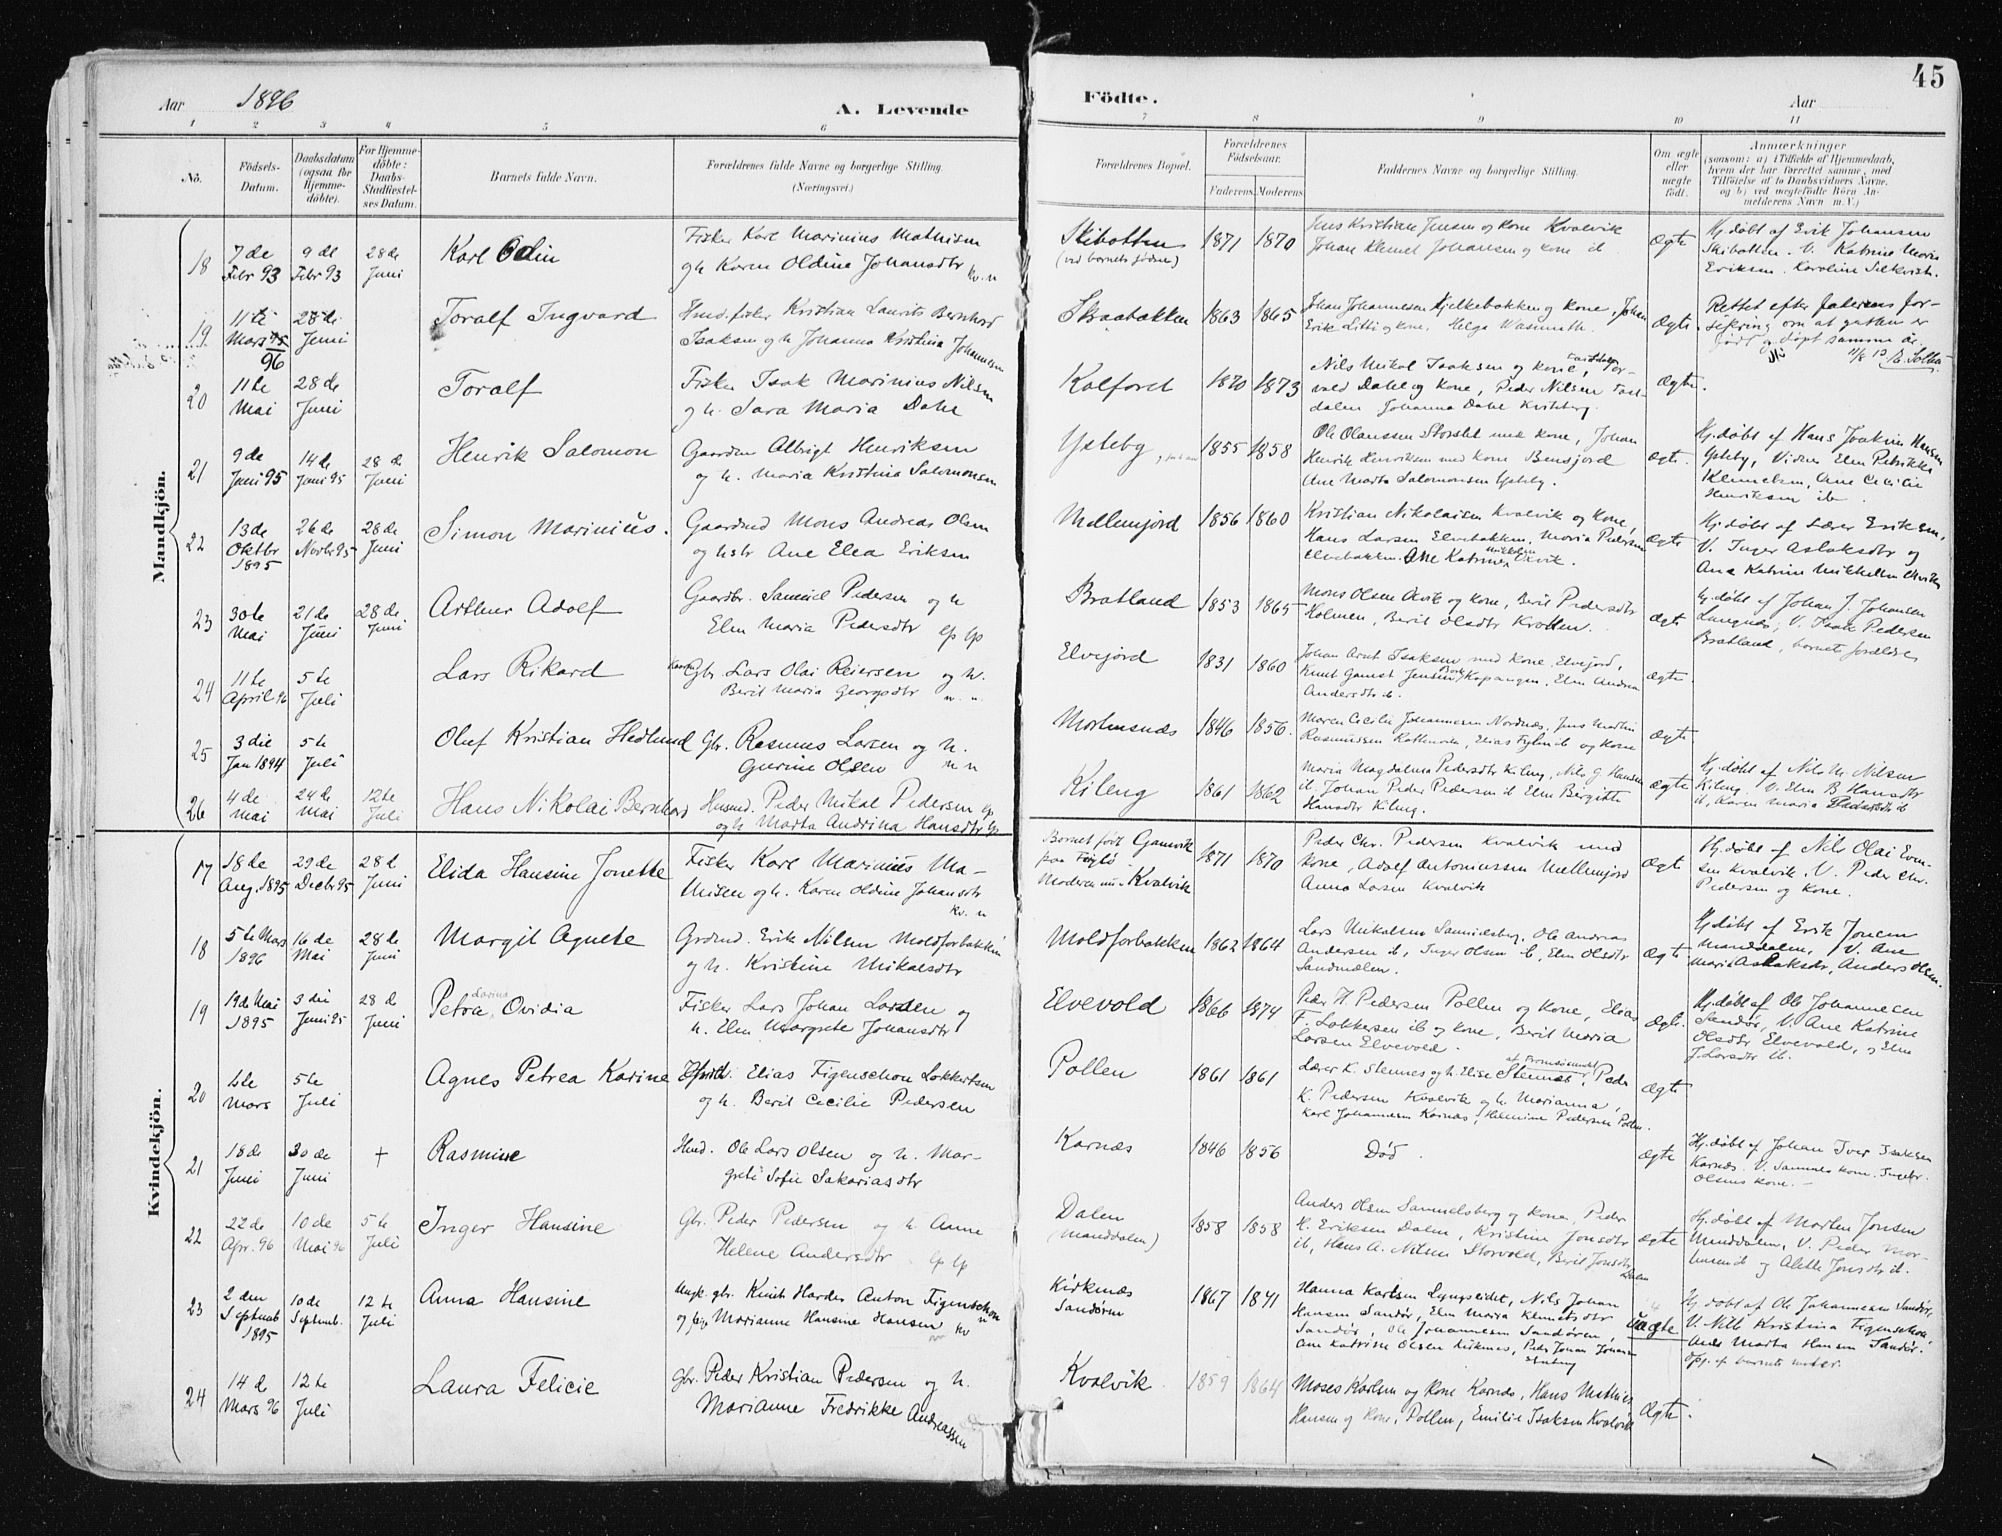 45
Aar 1896
A. Levende
Födte.
Aar
1 2 3 4 5 6 7 8 9 10 11
No.
Födsels-Datum.
Daabsdatum (ogsaa for Hjemmedöbte).
For Hjemmedöbte: Daabs-Stadfæstelses Datum.
Barnets fulde Navn.
Forældrenes fulde Navne og borgerlige Stilling.
(Næringsvei.)
Forældrenes Bopæl.
Forældrenes Födselsaar.
Faderens Moderens
Faddernes Navne og borgerlige Stilling.
Om ægte eller uægte födt.
Anmærkninger
(saasom: a) i Tilfælde af Hjemmedaab, hvem der har forrettet samme, med Tilföielse af to Daabsvidners Navne. og b) ved uægtefödte Börn Anmelderens Navn m. V.)
Mandkjön.
18 7 de Febr 93 9 de Febr 93 28 de Juni Karl Odin
Fisker Karl Marinius Mathisen
og h Karen Oldine Johansdtr kv. n
Skibotten 1871 1870
Jens Kristian Jensen og kone Kvalvik
Johan Klemet Johansen og kone ib
ægte
Hj. døbt af Erik Johansen
Skibotten. V. Katrine Maria
Eriksen. Karoline
19 11te Mars 95 96 28de Juni Toralf Ingvard
Husd. fisker Kristian Laurits Bernhard
Isaksen og h Johanna Kristina Johannesen
Skraabakken 1863 1865
Johan Johannesen Kjelkebakken og kone, Johan
Erik Litti og kone. Helga Wasmuth.
ægte
Rettet efter faderens for-
sikring om at gutten er
født og døpt samme år.
20 11te Mai 28 de Juni Toralf
Fisker Isak Marinius Nilsen
og h. Sara Maria Dahl
Kalforet 1870 1873
Nils Mikal Isaksen og kone, Tor-
vald Dahl og kone, Peder Nilsen
dalen Johanna Dahl Kvitberg.
ægte.
21 9de Juni 95 14de Juni 95 28 de Juni Henrik Salomon
Gaardm Albrigt Henriksen
og h. Maria Kristina Salomonsen
Ysteby 1855 1858
Ole Olaussen Storslet med kone, Johan
Henrik Henriksen med kone Bensjord
Ane Marta Salomonsen Ysteby.
ægte.
Hj. døbt af Hans Joakim Hansen
Ysteby, Vidner Elen Petrikke
Klemetsen, Ane Cecilie
Henriksen ib.
22 13de Oktbr 1895 26de Novbr 95 28de Juni Simon Marinius.
Gaardmd Mons Andreas Olsen
og hstr Ane Elea Eriksen
Mellemjord 1856 1860
Kristian Nikolaisen Kvalvik og kone,
Hans Larsen Elvebakken, Maria Pedersen
Elvebakken. Ane Katrine Mikkelsen Okvik.
ægte
Hj. døbt af Lærer Eriksen,
V. Inger Aslaksdtr og
Ane Katrine Mikkelsen Okvik
23 30te Mai 21 de Juni 28de Juni Arthur Adolf
Gaardbr. Samuel Pedersen og h
Elen Maria Pedersdtr lp lp
Bratland 1853 1865
Mons Olsen Okvik og kone, Berit Pedersdtr
Holmen, Berit Olsdtr Kroken.
ægte
hj. døbt af Johan J. Johansen
Lungnæs; V. Isak Pedersen
Bratland, barnets forældre
24 11te April 96 5 te Juli Lars Rikard
Gbr. Lars Olai Reiersen og h.
Berit Maria Georgsdtr n. n.
Elvejord 1831 1860
Johan Arnt Isaksen med kone, Elvejord,
Knut Gamst Jensen Kopangen. Elen Andrea
Andersdtr ib.
ægte.
25 3 die Jan 1894 5te Juli Oluf Kristian Hedlund
Gbr. Rasmus Larsen og h.
Gurine Olsen n n
Mortensnæs 1846 1856.
Maren Cecilie Johannesen Nordnæs, Jens Martin
Rasmussen, Elias og kone
ægte
26 4de Mai 24de Mai 12te Juli Hans Nikolai Bernhard
Husmd. Peder Mikal Pedersen lp
og h Marta Andrina Hansdtr lp
Kileng 1861 1862
Maria Magdalena Pedersdtr Kileng, Nils G Hansen
ib. Johan Peder Pedersen ib Elen Birgitte
Hansdtr Kileng.
ægte
Hj. døbt af Nils M. Nilsen
Kileng. V. Elen B Hansdtr
ib, Karen Maria Pedersdtr ib
Kvindekjön.
17 18de Aug. 1895 29de Decbr 95 28 d Juni Elida Hansine Jonette
Fisker Karl Marinius Ma-
thisen og h. Karen Oldine Johansdtr
kv. n
Barnet født Gamvik
paa
Moderen nu i Kvalvik 1871 1870
Peder Chr. Pedersen Kvalvik med
kone, Adolf Antoniussen Mellemjord
Anna Larsen Kvalvik
ægte
Hj. døbt af Nils Olai Even-
sen Kvalvik. V. Peder Chr.
Pedersen og kone.
18 5te Mars 1896 16de Mai 28 de Juni Margit Agnete
Grdmd. Erik Nilsen Moldforbakken
og h. Kristine Mikalsdtr
Moldforbakken 1862 1864
Lars Mikalsen Samuelsberg, Ole Andreas
Andersen ib, Inger Olsen ib, Elen Olsdtr
Sandmælen.
ægte
Hj. døbt af Erik Jonsen
Manddalen, V. Ane
Maria Aslaksdtr, Anders Olsen.
19 19de Mai 1895 3 die Juni 95 28 de Juni Petra Larius Ovidia
Fisker Lars Johan Larsen og
h. Elen Margrete Johansdtr
Elvevold 1866 1874
Peder H. Pedersen Pollen og kone, Elias
F. Lokkersen ib og kone, Berit Maria
Larsen Elvevold.
ægte.
Hj. døbt af Ole Johannesen
Sandør, V. Ane Katrine
Olsdtr Elvevold, og Elen
J. Larsdtr ib.
20 1ste Mars 5 te Juli Agnes Petrea Karine
Elias Figenschou Lokkertsen
og h. Berit Cecilie Pedersen
Pollen 1861 1861
Lærer K. Stennes og h. Elise Stennes af Tromsøsundet, Peder
K. Pedersen Kvalvik og h. Marianna,
Karl Johannesen Karnæs, Helmine Pedersen Pollen.
ægte
21 18de Juni 30 de Juni + Rasmine
Husd. Ole Lars Olsen og h. Mar-
grete Sofie Sakariasdtr
Karnæs 1846 1856
Død.
ægte
Hj. døbt af Johan Iver Isaksen
Karnæs. V. Sammes kone. Ingebr.
Olsens kone. -
22 22 de Apr. 96 10de Mai 96 5te Juli Inger Hansine
Gbr. Peder Pedersen og h. Anne
Helene Andersdtr lp lp
Dalen
(Manddalen) 1858 1858
Anders Olsen Samuelsberg og kone, Peder
H. Eriksen Dalen, Kristine Jonsdtr
ib, Hans A. Nilsen Storvold, Berit Jonsdtr
Dalen
ægte
Hj. døbt af Morten Jonsen
Manddalen, V. Peder Mor-
tensen ib og Alette Jonsdtr ib.
23 2 den Septemb 1895 10de Septemb. 12 te Juli Anna Hansine
Ungk. gbr. Knut Hardes Anton Figenschou n
og pige Marianne Hansine Hansen kv
Kirknæs
Sandøren 1867 1871
Hanna Karlsen Lyngseidet, Nils Johan
Hansen Sandør, Elen Maria Klemetsdtr
Sandør, Ole Johannesen Sandøren,
Ane Katrine Olsen Kirknæs, Peder Johan Johansen
uægte
Hj. døbt af Ole Johannesen Sandør,
V. Nille Kristina Figenschou,
Ane Marta Hansen Sandør.
Opg. af barnets moder.
24 14 d Mars 96 12te Juli Laura Felicie
gbr. Peder Kristian Pedersen og h.
Marianne Fredrikke Andreassen
Kvalvik 1859 1864
Moses Karlsen og kone Karnæs, Hans Mathias
Hansen og kone, Pollen, Emilie Isaksen Kvalvik
ægte.